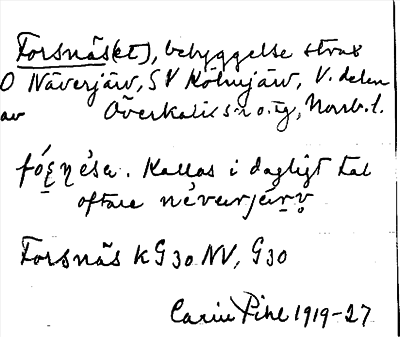 Forsnäs(et), bebyggelse strax
O Näverjärv, SV Kölmjärv, V. delen
av Överkalix sn o. tg, Norrb. l.
Kallas i dagligt tal
oftare
Forsnäs KG30 NV, G30
Carin Pihl 1919-27